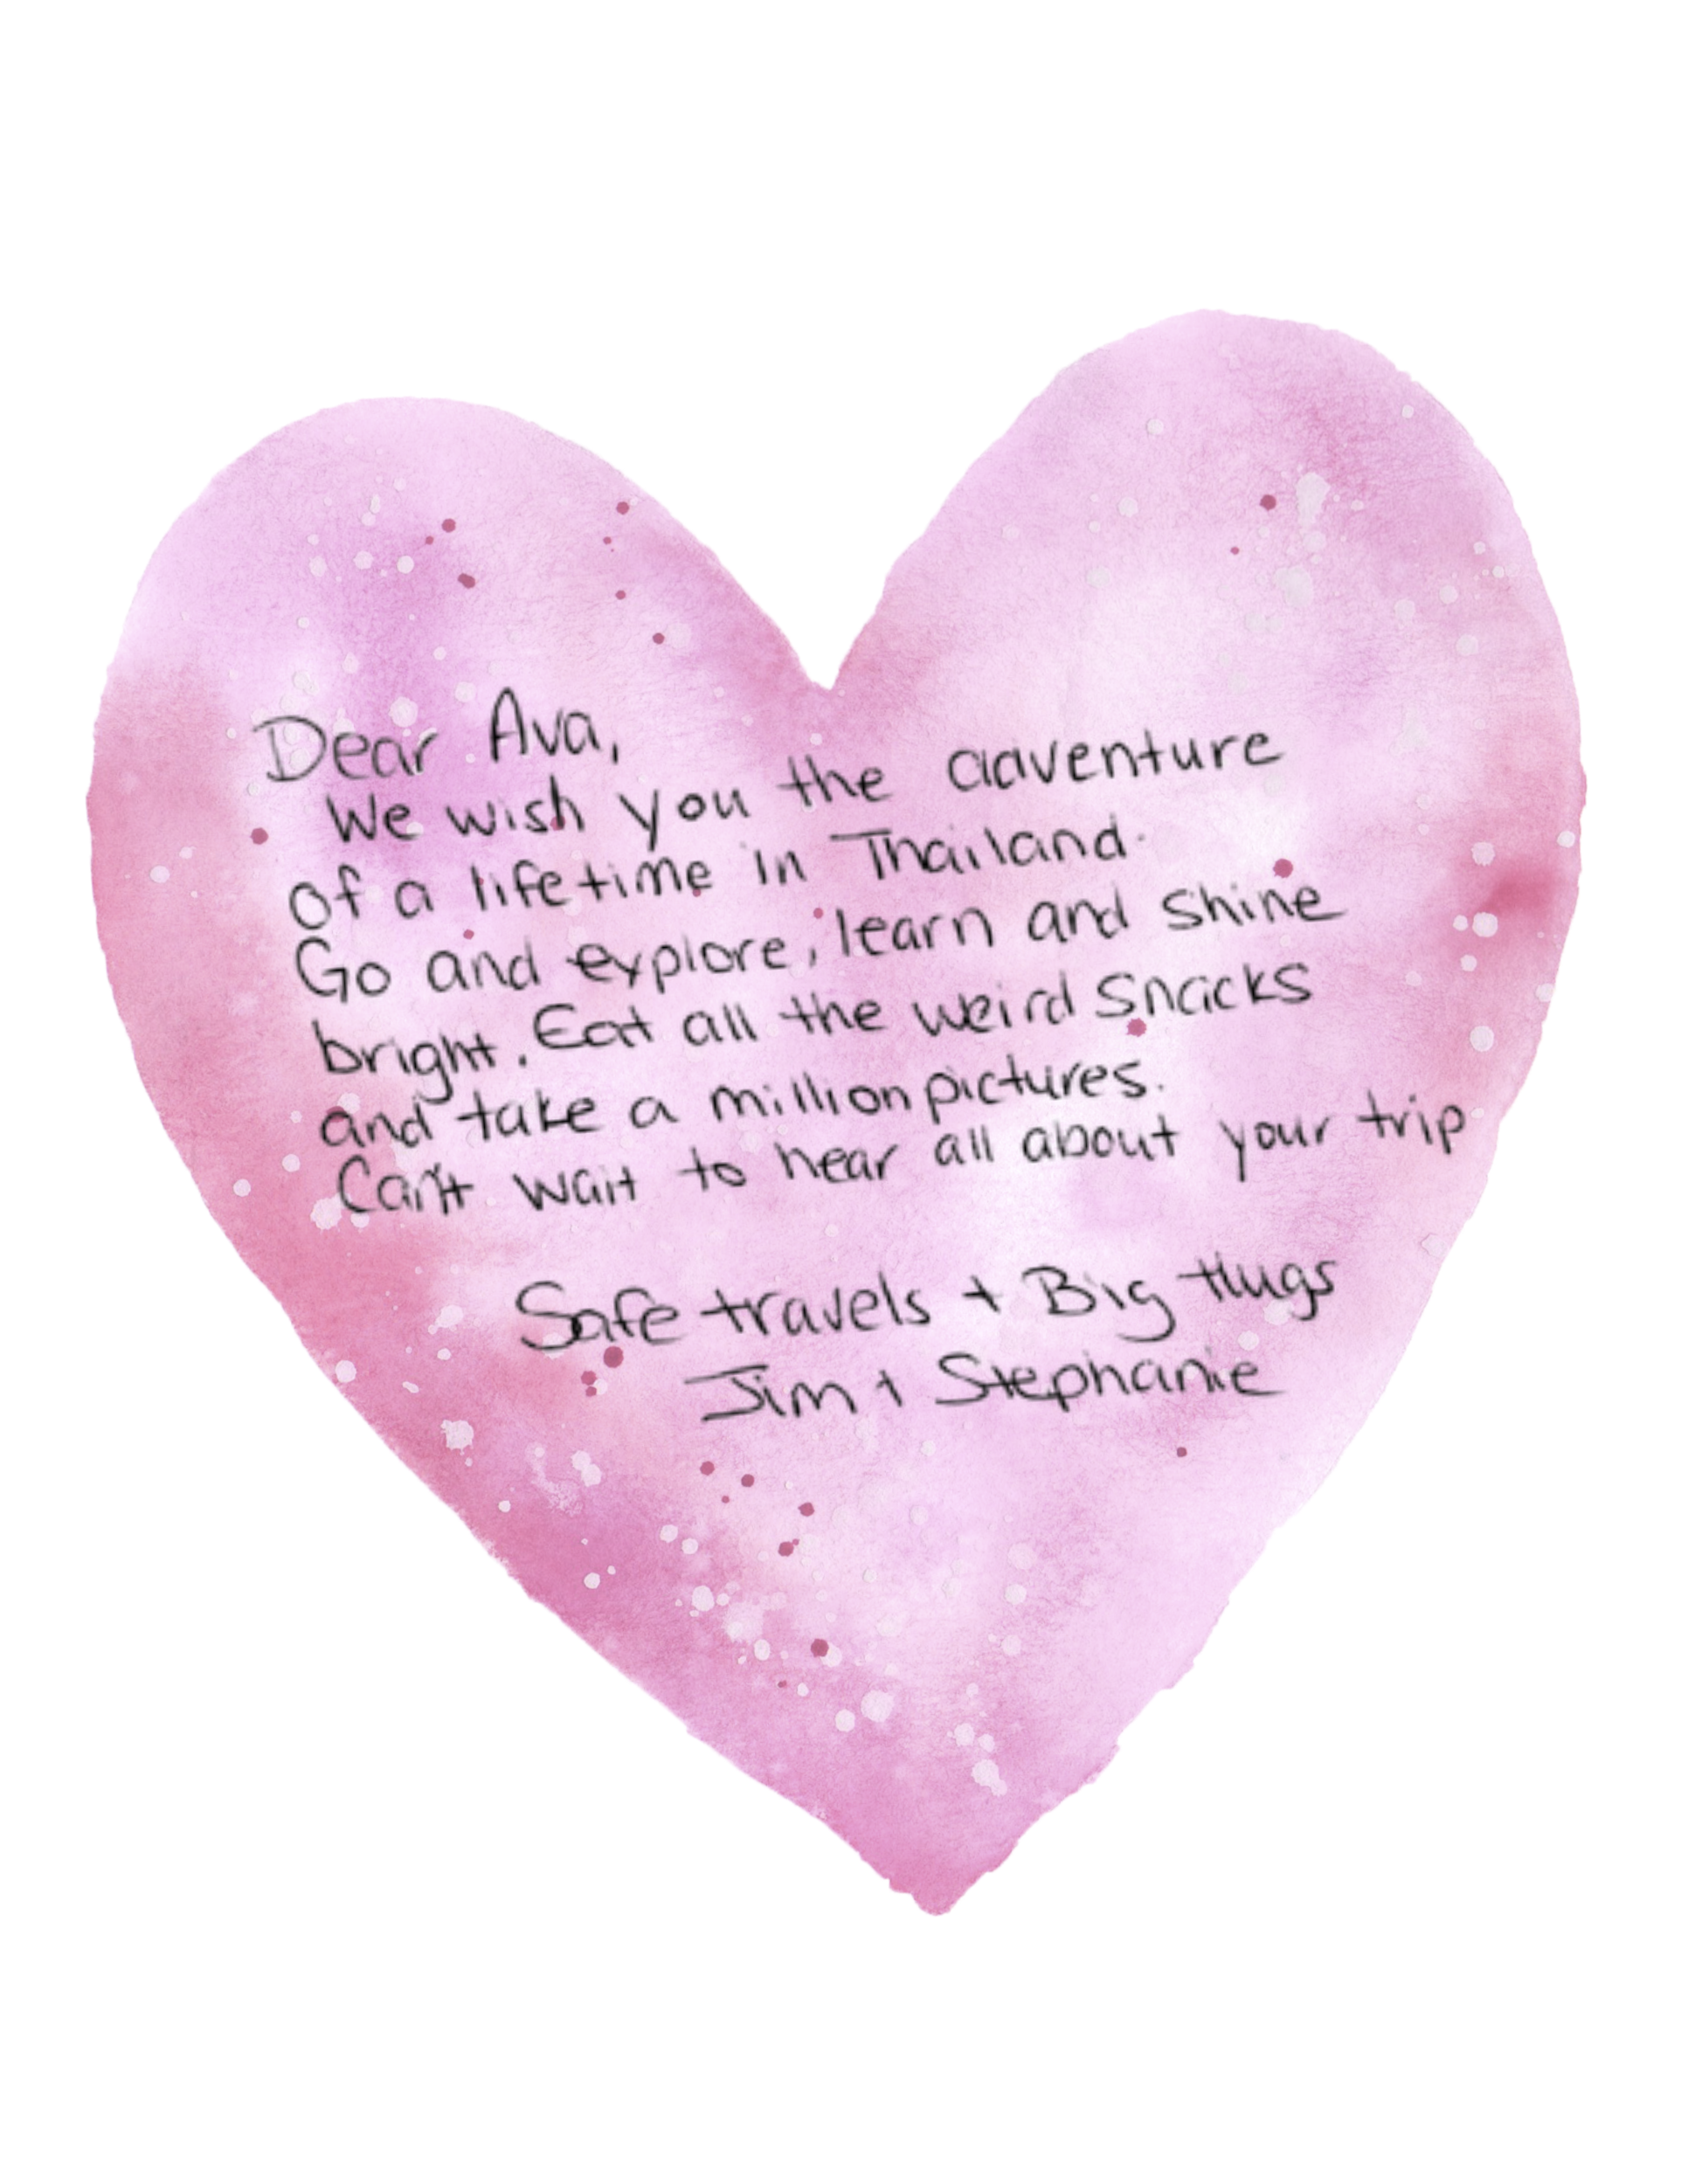 Dear Ava,
We wish you the adventure
of a lifetime in Thailand.
Go and explore, learn and shine
bright. Eat all the weird snacks
and take a million pictures.
Can't wait to hear all about your trip
Safe travels + Big Hugs
Jim + Stephanie